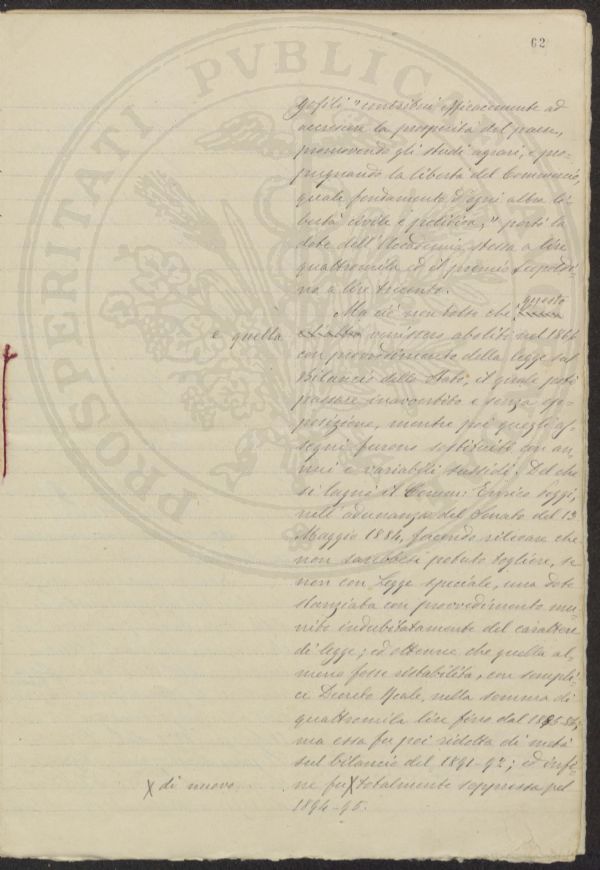 62
gofili "contribuì efficacemente ad
accrescere la prosperità del paese,
promovendo gli studi agrari, e pro-
pugnando la libertà del Commercio,
quale fondamento d'ogni altra li-
bertà civile e politica," portò la
dote dell'Accademia stessa a lire
quattromila ed il premio Leopoldi-
no a lire trecento.
Ma ciò non tolse che questo
e quella venissero aboliti nel 1864
con provvedimento della legge sul
Bilancio dello Stato, il quale potè
passare inavvertito e senza op-
posizione, mentre poi quegli as-
segni furono sostituiti con an-
nui e variabili sussidi. Del che
si lagnò il Comm: Enrico Poggi,
nell'adunanza del Senato del 13
Maggio 1884, facendo rilevare che
non sarebbesi potuto togliere, se
non con Legge speciale, una dote
stanziata con provvedimento mu-
nito indubitatamente del carattere
di legge; ed ottenne che quella al-
meno fosse ristabilita, con sempli-
ce Decreto Reale, nella somma di
quattromila lire fino dal 1885-86;
ma essa fu poi ridotta di metà
sul bilancio del 1891-92; ed infi-
ne fu X totalmente soppressa pel
X di nuovo
1894-95.
PROSPERITATI PVBLICAE